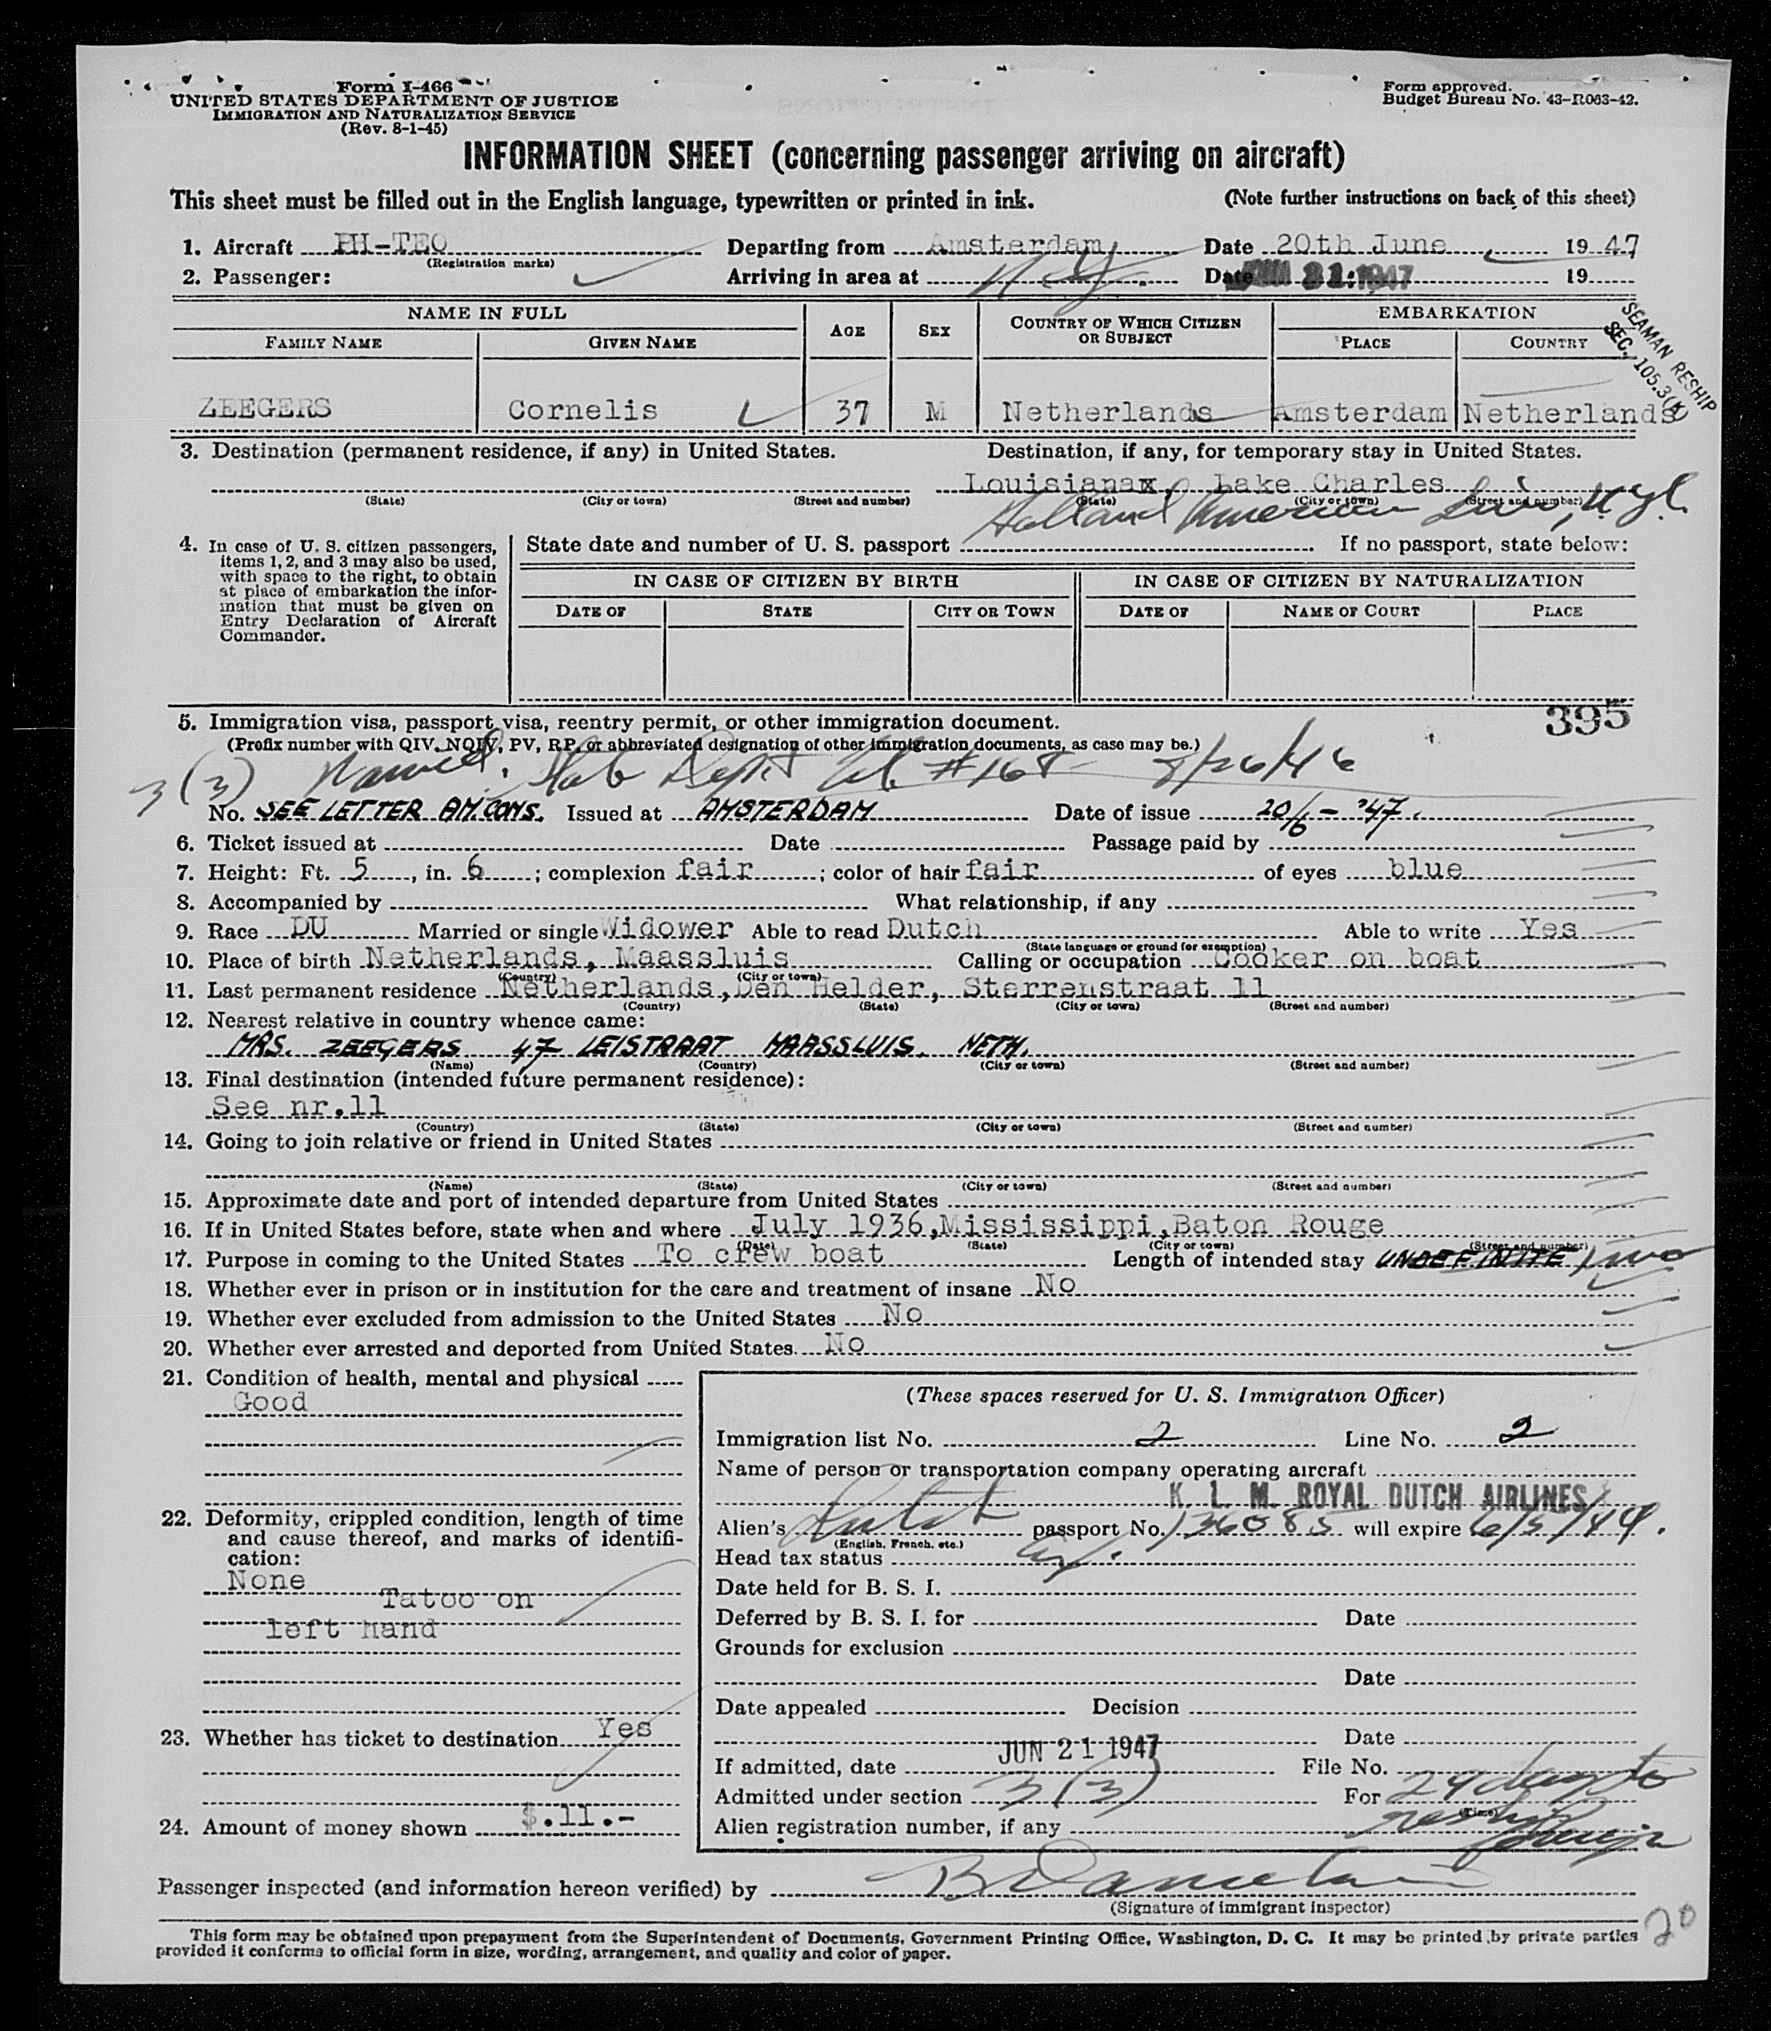 Form I-466
UNITED STATES DEPARTMENT OF JUSTICE
IMMIGRATION AND NATURALIZATION SERVICE
(Rev. 8-1-45)
Form approved.
Budget Bureau No. 43-R063-42.
INFORMATION SHEET (concerning passenger arriving on aircraft)
This sheet must be filled out in the English language, typewritten or printed in ink. (Note further instructions on back of this sheet)
1. Aircraft PH-TEO Departing from Amsterdam Date 20th June 1947
(Registration marks)
2. Passenger: Arriving in area at N.Y. Date JUN 21 1947 19
NAME IN FULL AGE SEX COUNTRY OF WHICH CITIZEN OR SUBJECT EMBARKATION
FAMILY NAME GIVEN NAME PLACE COUNTRY
SEAMAN RESHIP
SEC. 105.3(K)
ZEEGERS Cornelis 37 M Netherlands Amsterdam Netherlands
3. Destination (permanent residence, if any) in United States. Destination, if any, for temporary stay in United States.
Louisianax, Lake Charles
(State) (City or town) (Street and number) (State) (City or town) (Street and number)
Holland American Line, N.Y.C.
4. In case of U. S. citizen passengers, items 1, 2, and 3 may also be used, with space to the right, to obtain at place of embarkation the information that must be given on Entry Declaration of Aircraft Commander.
State date and number of U. S. passport If no passport, state below:
IN CASE OF CITIZEN BY BIRTH IN CASE OF CITIZEN BY NATURALIZATION
DATE OF STATE CITY OR TOWN DATE OF NAME OF COURT PLACE
395
5. Immigration visa, passport visa, reentry permit, or other immigration document.
(Prefix number with QIV, NQIV, PV, RP, or abbreviated designation of other immigration documents, as case may be.)
3(3) Waived. State Dept #168 8/26/46
No. SEE LETTER AM.CONS. Issued at AMSTERDAM Date of issue 20/6-'47.
6. Ticket issued at Date Passage paid by
7. Height: Ft. 5, in. 6; complexion fair; color of hair fair of eyes blue
8. Accompanied by What relationship, if any
9. Race DU Married or single Widower Able to read Dutch Able to write Yes
(State language or ground for exemption)
10. Place of birth Netherlands, Maassluis Calling or occupation Cooker on boat
(Country) (City or town)
11. Last permanent residence Netherlands, Den Helder, Sterrenstraat 11
(Country) (State) (City or town) (Street and number)
12. Nearest relative in country whence came:
MRS. ZEEGERS 47 LEISTRAAT MAASSLUIS. NETH.
(Name) (Country) (City or town) (Street and number)
13. Final destination (intended future permanent residence):
See nr.11
(Country) (State) (City or town) (Street and number)
14. Going to join relative or friend in United States
(Name) (State) (City or town) (Street and number)
15. Approximate date and port of intended departure from United States
16. If in United States before, state when and where July 1936, Mississippi, Baton Rouge
(Date) (State) (City or town) (Street and number)
17. Purpose in coming to the United States To crew boat Length of intended stay UNDEFINITE
18. Whether ever in prison or in institution for the care and treatment of insane No
19. Whether ever excluded from admission to the United States No
20. Whether ever arrested and deported from United States. No
21. Condition of health, mental and physical
Good
22. Deformity, crippled condition, length of time and cause thereof, and marks of identification:
None
Tatoo on
left hand
23. Whether has ticket to destination Yes
24. Amount of money shown $.11.-
(These spaces reserved for U. S. Immigration Officer)
Immigration list No. 2 Line No. 2
Name of person or transportation company operating aircraft
K. L. M. ROYAL DUTCH AIRLINES
Alien's Dutch passport No. 136085 will expire 6/5/49.
(English, French, etc.)
Head tax status
Date held for B. S. I.
Deferred by B. S. I. for Date
Grounds for exclusion
Date
Date appealed Decision
Date
If admitted, date JUN 21 1947 File No.
Admitted under section 3(3) For 29 days to
(Time)
reship foreign
Alien registration number, if any
Passenger inspected (and information hereon verified) by
(Signature of immigrant inspector)
20
This form may be obtained upon prepayment from the Superintendent of Documents, Government Printing Office, Washington, D. C. It may be printed by private parties
provided it conforms to official form in size, wording, arrangement, and quality and color of paper.